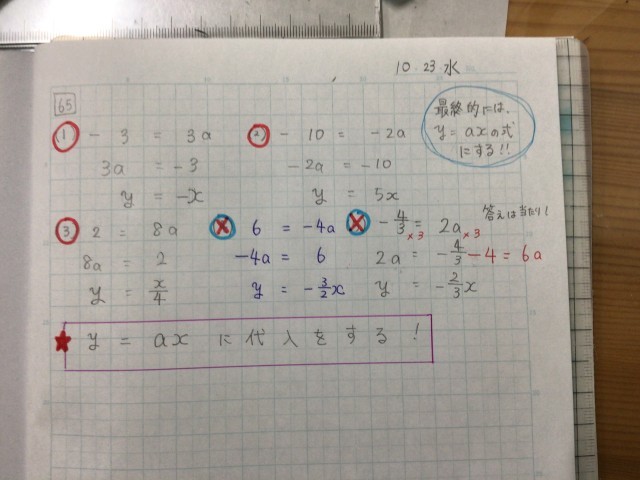 10.23 水
65
最終的には、
y = axの式
にする!!
(1) - 3 = 3a
3a = -3
y = -x
(2) - 10 = -2a
-2a = -10
y = 5x
(3) 2 = 8a
8a = 2
y = x/4
6 = -4a
-4a = 6
y = -3/2 x
答えは当たり!
-4/3 ×3 = 2a ×3
2a = -4/3 -4 = 6a
y = -2/3 x
★ y = ax に代入をする!